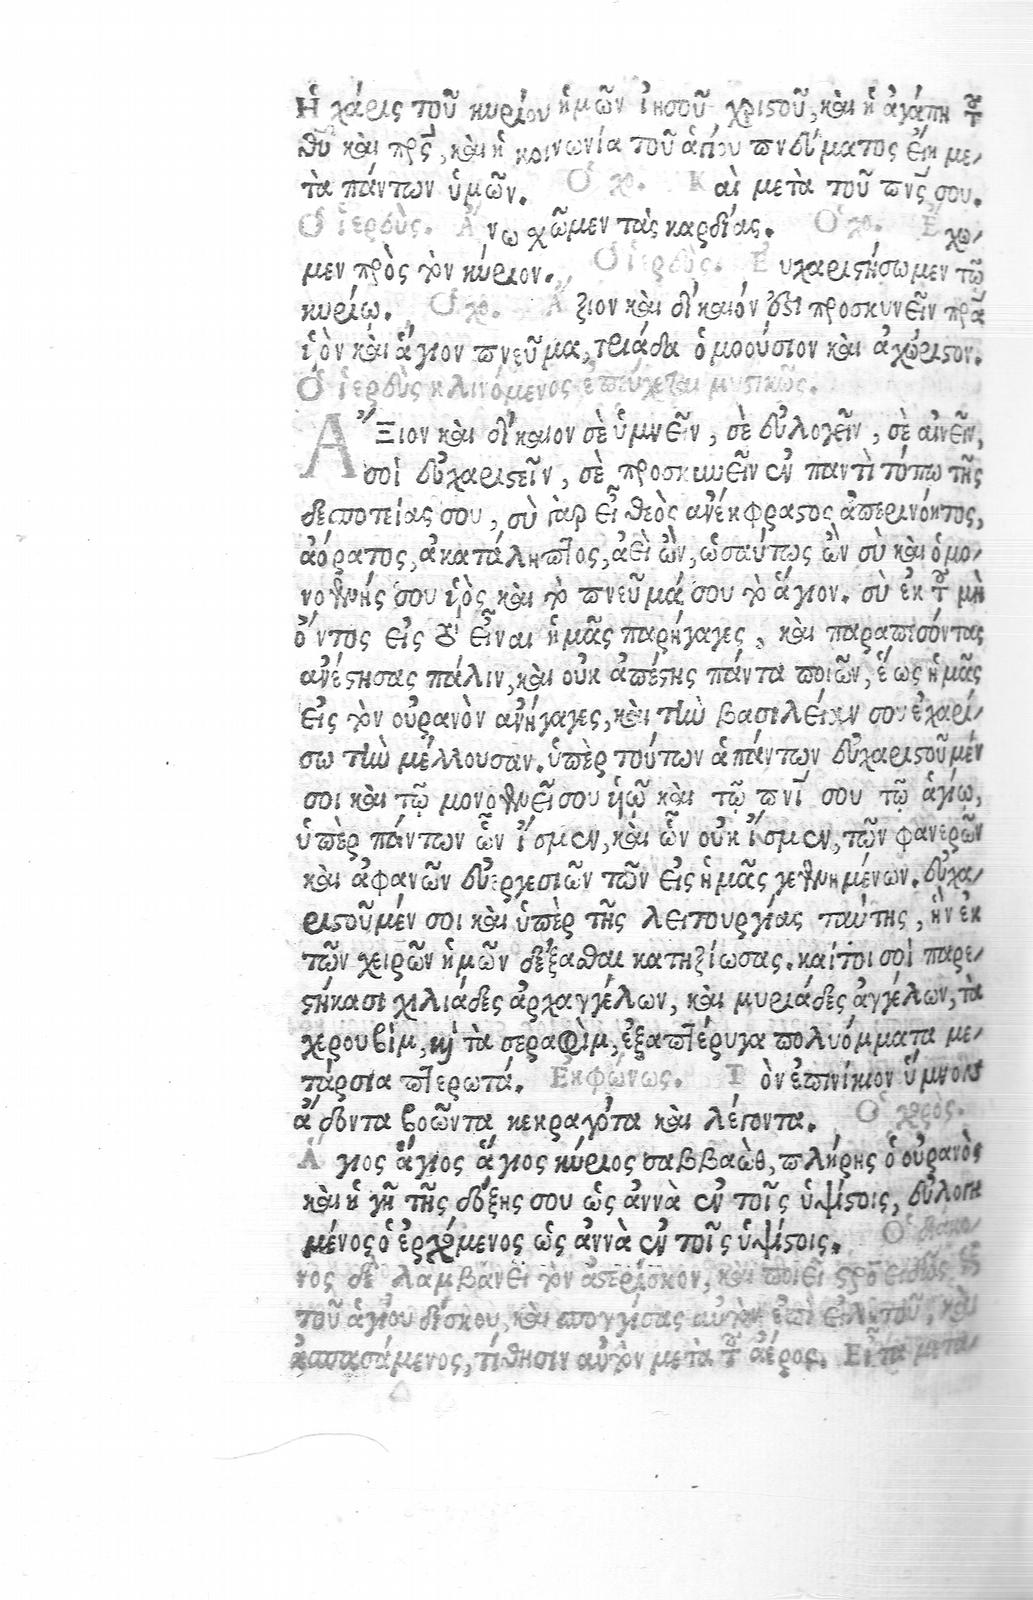 Ἡ χάρις τοῦ κυρίου ἡμῶν ἰησοῦ χριστοῦ, καὶ ἡ ἀγάπη τοῦ
θῦ καὶ πρς, καὶ ἡ κοινωνία τοῦ ἁγίου πνεύματος εἴη με-
τὰ πάντων ὑμῶν. Ὁ χο. Καὶ μετὰ τοῦ πνς σου.
Ὁ ἱερεὺς. Ἄνω χῶμεν τὰς καρδίας. Ὁ χο. Ἔχο-
μεν πρὸς τὸν κύριον. Ὁ ἱερεὺς. Εὐχαριστήσωμεν τῷ
κυρίῳ. Ὁ χο. Ἄξιον καὶ δίκαιόν ἐστι προσκυνεῖν πρα
ὑὸν καὶ ἅγιον πνεῦμα, τριάδα ὁμοούσιον καὶ ἀχώριστον.
Ὁ ἱερεὺς κλινόμενος ἐπεύχεται μυστικῶς.
Ἄξιον καὶ δίκαιον σὲ ὑμνεῖν, σὲ εὐλογεῖν, σὲ αἰνεῖν,
σοὶ εὐχαριστεῖν, σὲ προσκυνεῖν ἐν παντὶ τόπῳ τῆς
δεσποτείας σου, σὺ γὰρ εἶ θεὸς ἀνέκφραστος ἀπερινόητος,
ἀόρατος, ἀκατάληπτος, ἀεὶ ὢν, ὡσαύτως ὢν σὺ καὶ ὁ μο-
νογενής σου ὑὸς καὶ τὸ πνεῦμά σου τὸ ἅγιον. σὺ ἐκ τοῦ μὴ
ὄντος εἰς τὸ εἶναι ἡμᾶς παρήγαγες, καὶ παραπεσόντας
ἀνέστησας πάλιν, καὶ οὐκ ἀπέστης πάντα ποιῶν, ἕως ἡμᾶς
εἰς τὸν οὐρανὸν ἀνήγαγες, καὶ τὴν βασιλείαν σου ἐχαρί-
σω τὴν μέλλουσαν. ὑπὲρ τούτων ἁπάντων εὐχαριστοῦμέν
σοι καὶ τῷ μονογενεῖ σου ὑῷ καὶ τῷ πνι σου τῷ ἁγίῳ,
ὑπὲρ πάντων ὧν ἴσμεν, καὶ ὧν οὐκ ἴσμεν, τῶν φανερῶν
καὶ ἀφανῶν εὐεργεσιῶν τῶν εἰς ἡμᾶς γεγενημένων. εὐχα-
ριστοῦμέν σοι καὶ ὑπὲρ τῆς λειτουργίας ταύτης, ἣν ἐκ
τῶν χειρῶν ἡμῶν δέξασθαι κατηξίωσας. καίτοι σοὶ παρε-
στήκασι χιλιάδες ἀρχαγγέλων, καὶ μυριάδες ἀγγέλων, τὰ
χερουβὶμ, καὶ τὰ σεραφὶμ, ἑξαπτέρυγα πολυόμματα με-
τάρσια πτερωτά. Ἐκφώνως. Τὸν ἐπινίκιον ὕμνον
ᾄδοντα βοῶντα κεκραγότα καὶ λέγοντα. Ὁ χορός.
Ἅγιος ἅγιος ἅγιος κύριος σαββαὼθ, πλήρης ὁ οὐρανὸς
καὶ ἡ γῆ τῆς δόξης σου ὡς ἀννὰ ἐν τοῖς ὑψίστοις, εὐλογη
μένος ὁ ἐρχόμενος ὡς ἀννὰ ἐν τοῖς ὑψίστοις. Ὁ διάκο-
νος δὲ λαμβάνει τὸν ἀστερίσκον, καὶ ποιεῖ
τοῦ ἁγίου δίσκου, καὶ σπογγίσας αὐτὸν καὶ
ἀσπασάμενος, τίθησιν αὐτὸν μετὰ τοῦ ἀέρος. Εἶτα μετα-